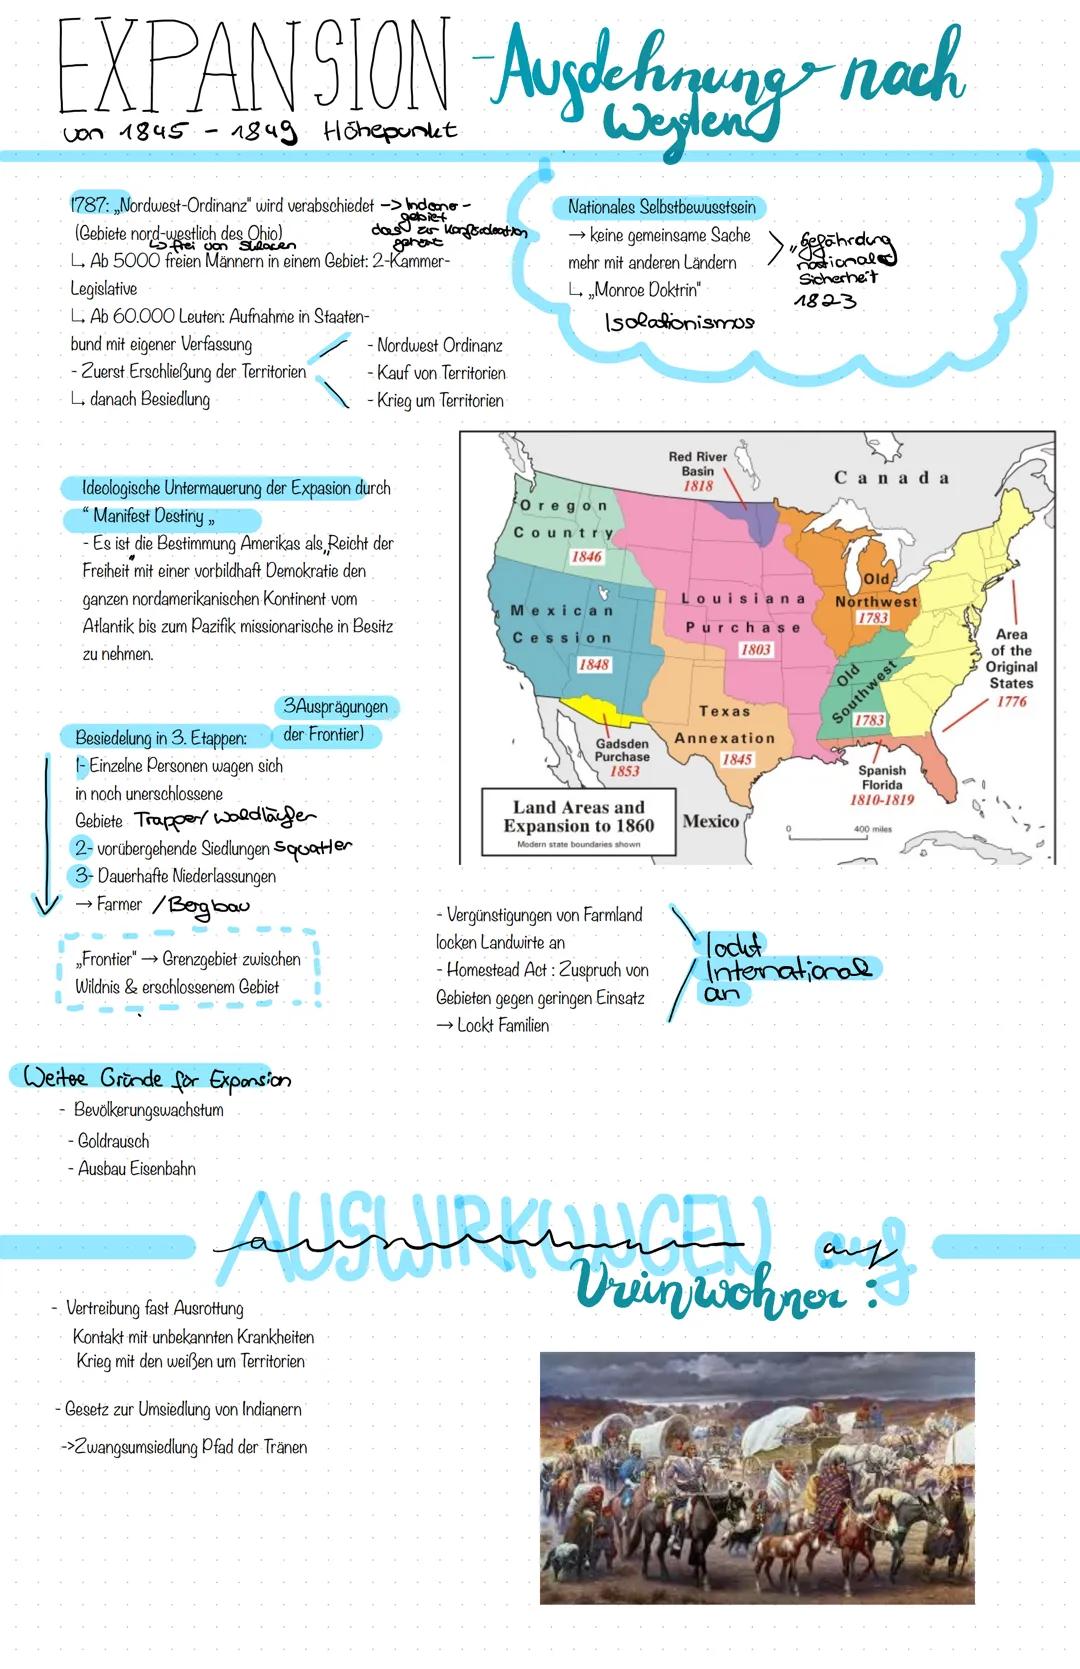 EXPANSION - Ausdehnung nach
Westen
von 1845 - 1849 Höhepunkt
1787: „Nordwest-Ordinanz" wird verabschiedet -> Indianer-
gebiet
das zur Konförderation
gehört
(Gebiete nord-westlich des Ohio)
↳ frei von Sklaven
↳ Ab 5000 freien Männern in einem Gebiet: 2-Kammer-
Legislative
↳ Ab 60.000 Leuten: Aufnahme in Staaten-
bund mit eigener Verfassung
- Zuerst Erschließung der Territorien
↳ danach Besiedlung
- Nordwest Ordinanz
- Kauf von Territorien
- Krieg um Territorien
Nationales Selbstbewusstsein
→ keine gemeinsame Sache
mehr mit anderen Ländern
↳ „Monroe Doktrin"
Isolationismus
„Gefährdung
nationaler
Sicherheit
1823
Ideologische Untermauerung der Expasion durch
“ Manifest Destiny „
- Es ist die Bestimmung Amerikas als „Reicht der
Freiheit" mit einer vorbildhaft Demokratie den
ganzen nordamerikanischen Kontinent vom
Atlantik bis zum Pazifik missionarische in Besitz
zu nehmen.
Red River
Basin
1818
Canada
Oregon
Country
1846
Louisiana
Purchase
1803
Old
Northwest
1783
Mexican
Cession
1848
Area
of the
Original
States
1776
Old
Southwest
1783
Texas
Annexation
1845
Gadsden
Purchase
1853
Spanish
Florida
1810-1819
Land Areas and
Expansion to 1860
Modern state boundaries shown
Mexico
0 400 miles
3Ausprägungen
der Frontier)
Besiedelung in 3. Etappen:
1- Einzelne Personen wagen sich
in noch unerschlossene
Gebiete Trapper/ Waldläufer
2- vorübergehende Siedlungen Squatter
3- Dauerhafte Niederlassungen
→ Farmer /Bergbau
„Frontier" → Grenzgebiet zwischen
Wildnis & erschlossenem Gebiet
- Vergünstigungen von Farmland
locken Landwirte an
- Homestead Act : Zuspruch von
Gebieten gegen geringen Einsatz
→ Lockt Familien
lockt
International
an
Weitee Gründe für Expansion
- Bevölkerungswachstum
- Goldrausch
- Ausbau Eisenbahn
AUSWIRKUNGEN auf
Ureinwohner :
- Vertreibung fast Ausrottung
Kontakt mit unbekannten Krankheiten
Krieg mit den weißen um Territorien
- Gesetz zur Umsiedlung von Indianern
->Zwangsumsiedlung Pfad der Tränen